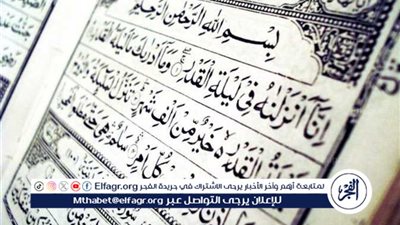 بِسْمِ اللَّهِ الرَّحْمَٰنِ الرَّحِيمِ
إِنَّا أَنزَلْنَاهُ فِي لَيْلَةِ الْقَدْرِ وَمَا أَدْرَاكَ مَا لَيْلَةُ الْقَدْرِ
الْقَدْرِ خَيْرٌ مِنْ أَلْفِ شَهْرٍ تَنَزَّلُ الْمَلَائِكَةُ
كُلِّ أَمْرٍ سَلَامٌ هِيَ حَتَّى
لمتابعة أهم وآخر الأخبار يرجى الاشتراك في جريدة الفجر Elfagr.org
للإعلان يرجى التواصل عبر Mthabet@elfagr.org
الفجر